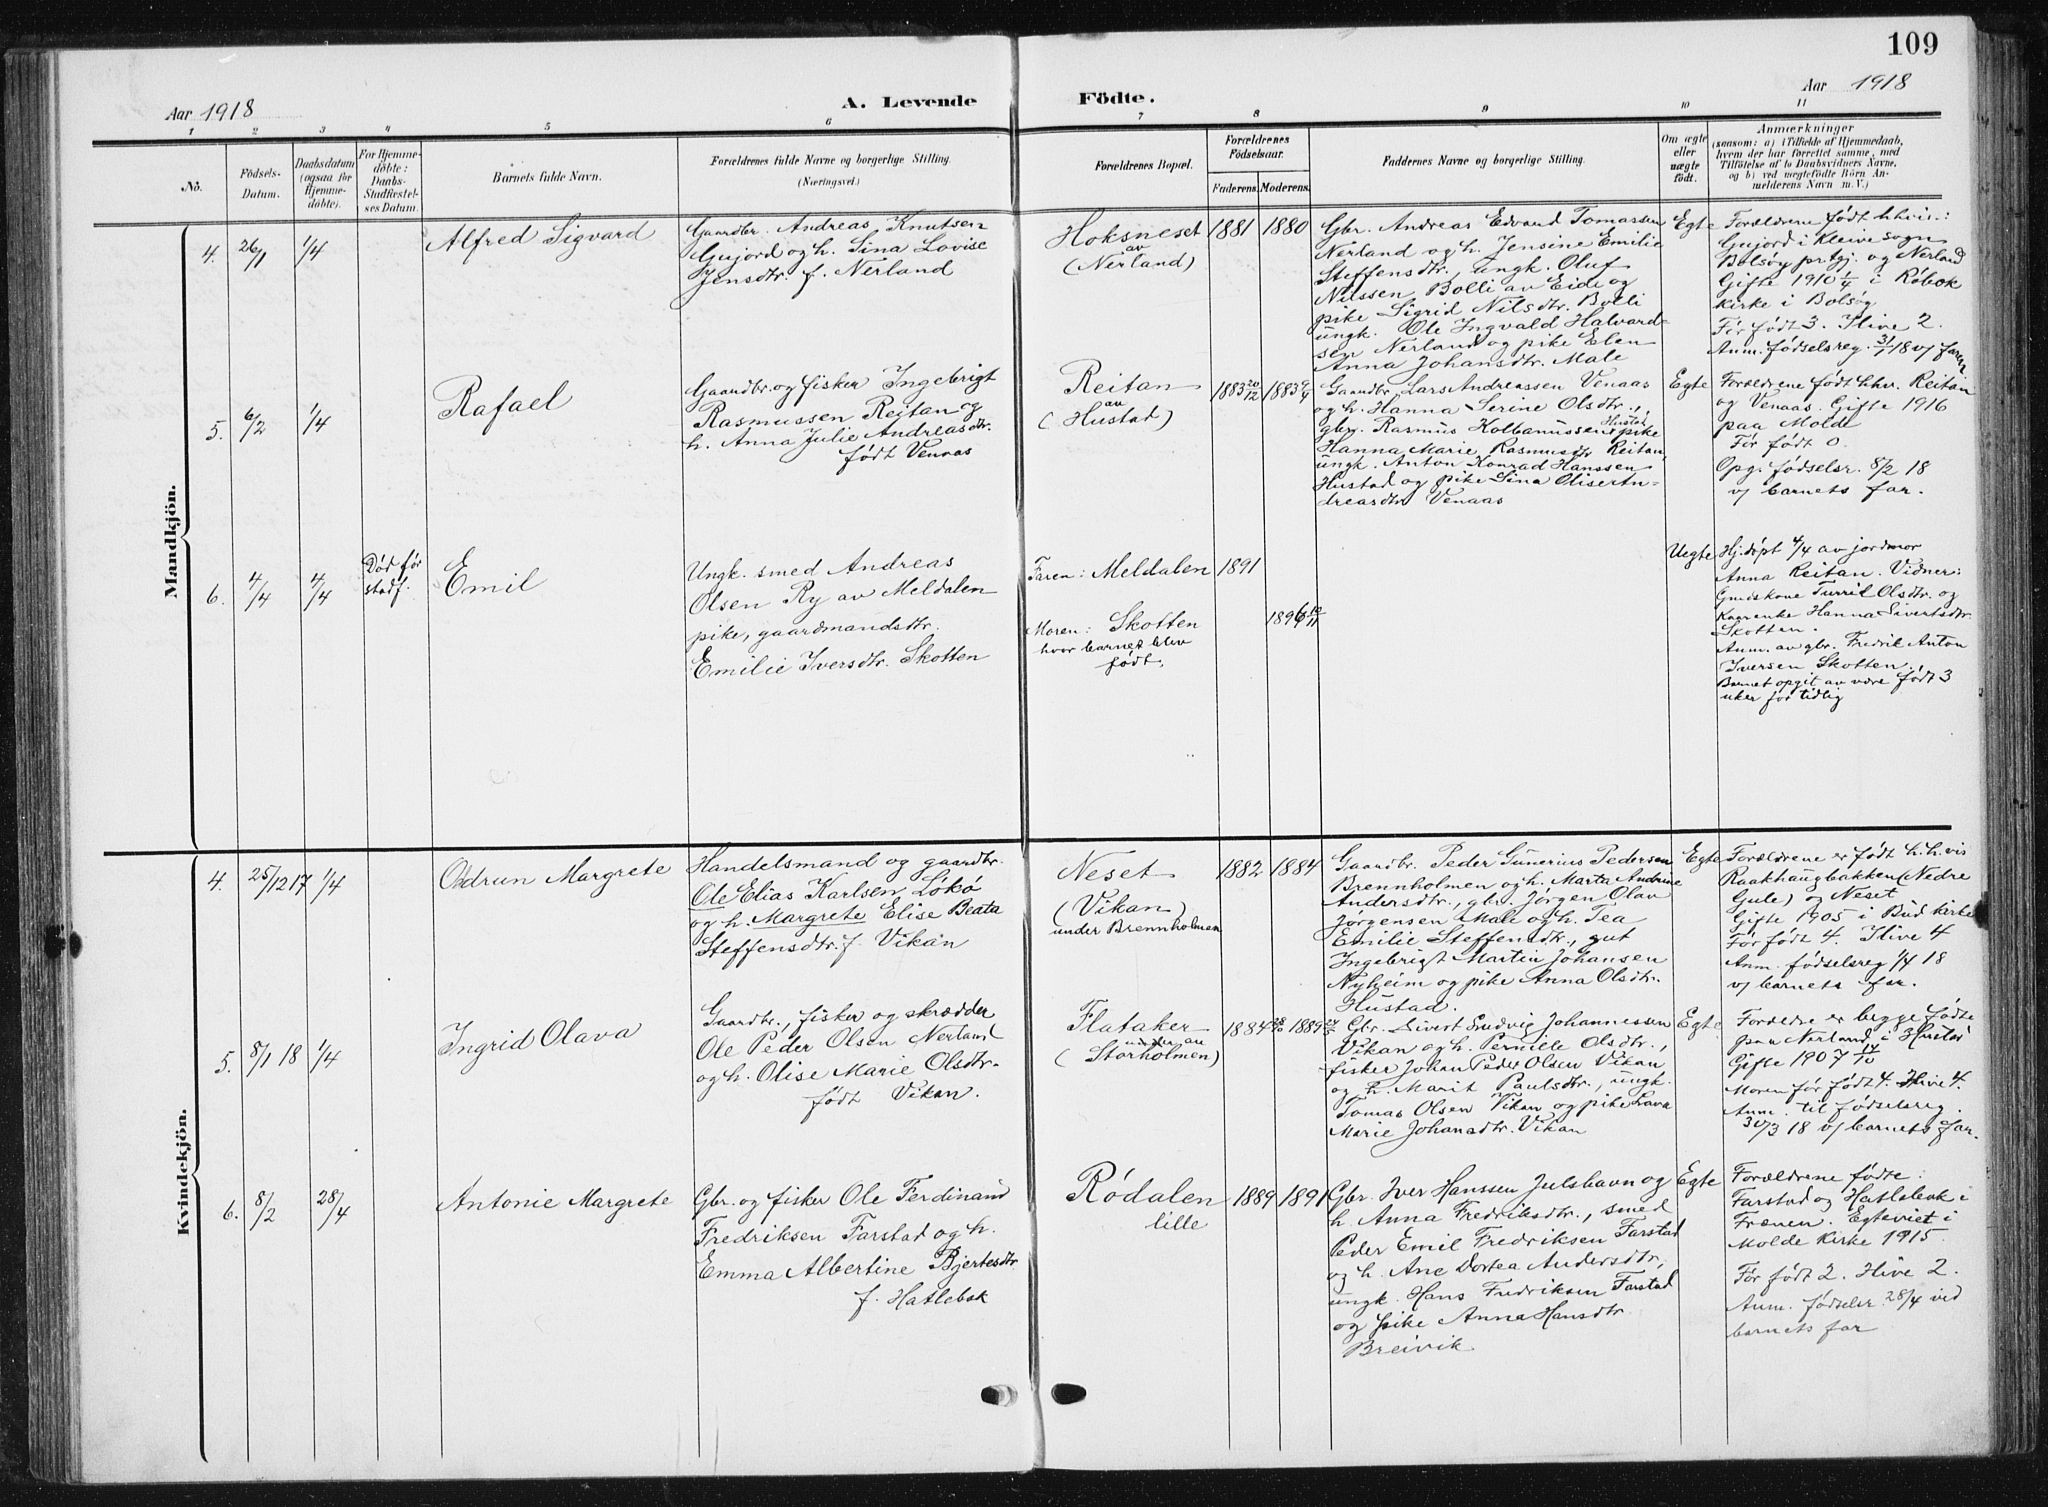 109
Aar 1918
A. Levende
Födte.
Aar 1918
1
2
3
4
5
6
7
8
9
10
11
No.
Födsels-
Datum.
Daabsdatum
(ogsaa for
Hjemme-
döbte).
For Hjemme-
döbte:
Daabs-
Stadfæstel-
ses Datum.
Barnets fulde Navn.
Forældrenes fulde Navne og borgerlige Stilling.
(Næringsvei.)
Forældrenes Bopæl.
Forældrenes
Födselsaar.
Faderens.
Moderens.
Faddernes Navne og borgerlige Stilling.
Om ægte
eller
uægte
födt.
Anmærkninger
(saasom: a) i Tilfælde af Hjemmedaab,
hvem der har forrettet samme, med
Tilföielse af to Daabsvidners Navne,
og b) ved uægtefödte Börn An-
melderens Navn m. V.)
Mandkjön.
4.
26/1
1/4
Alfred Sigvard
Gaardbr. Andreas Knutsen
Gujord og h. Sina Lovise
Jensdtr. f. Nerland
Hoksneset
av
(Nerland)
1881
1880
Gbr. Andreas Edvard Tomassen
Nerland og h. Jensine Emilie
Steffensdtr., ungk. Oluf
Nilssen Bolli av Eide og
pike Sigrid Nilsdtr. Bolli
ungk. Ole Ingvald Halvard-
sen Nerland og pike Elen
Anna Johansdtr. Male
Egte
Forældrene født hhvis:
Gujord i Kleive sogn
Bolsøy prgj. og Nerland
Gifte 1910 1/4 i Røbek
kirke i Bolsøy
Før født 3. Ilive 2.
Anm. fødselsreg. 31/1 18 v/ faren
5.
6/2
1/4
Rafael
Gaardbr. og fisker Ingebrigt
Rasmussen Reitan og
h. Anna Julie Andreasdtr.
født Venaas
Reitan
av
(Hustad)
1883 20/12
1883 9/4
Gaardbr. Lars Andreassen Venaas
og h. Hanna Serine Olsdtr.,
gbr. Rasmus Kolbanussen Hustad, pike
Hanna Marie Rasmusdtr Reitan,
ungk. Anton Konrad Hanssen
Hustad og pike Sina Oliser An-
dreasdtr Venaas
Egte
Forældrene født hhv. Reitan
og Venaas. Gifte 1916
paa Molde
Før født 0.
Opg. fødselsr. 8/2 18
v/ barnets far.
6.
4/4
4/4
Død før
stadf.
Emil
Ungk. smed Andreas
Olsen Ry av Meldalen
pike, gaardmandsdtr.
Emilie Iversdtr. Skotten
Faren: Meldalen
Moren: Skotten
hvor barnet blev
født.
1891
1896 12/11
Uegte
Hj.døpt 4/4 av jordmor
Anna Reitan. Vidner:
Gmdskone Turrid Olsdtr. og
Kaarenke Hanna Sivertsdtr.
Skotten.
Anm. av gbr. Fredrik Anton
Iversen Skotten.
Barnet opgit av være født 3
uker for tidlig
Kvindekjön.
4.
25/12 17
1/4
Odrun Margrete
Handelsmand og gaardbr.
Ole Elias Karlsen Løkø
og h. Margrete Elise Beata
Steffensdtr. f. Vikan
Neset
(Vikan)
under Brennholmen
1882
1884
Gaardbr. Peder Sünerius Pedersen
Brennholmen og h. Marta Andrine
Andersdtr., gbr. Jørgen Olav
Jørgensen Male og h. Tea
Emilie Steffensdtr., gut
Ingebrigt Martin Johansen
Nyheim og pike Anna Olsdtr.
Hustad.
Egte
Forældrene er født h.h.vis
Raakhaugbakken (Nedre
Gule) og Neset
Gifte 1905 i Bud kirke
Før født 4. Ilive 4
Anm. fødselsreg 1/4 18
v/ barnets far.
5.
8/1 18
1/4
Ingrid Olava
Gaardbr., fisker og skrædder
Ole Peder Olsen Nerland
og h. Olise Marie Olsdtr.
født Vikan.
Flataker
under av
(Storholmen)
1884
1889
Gbr. Sivert Ludvig Johannessen
Vikan og h. Pernille Olsdtr.,
fisker Johan Peder Olsen Vikan
og h. Marit Paulsdtr., ungk.
Tomas Olsen Vikan og pike Lava
Marie Johansdtr. Vikan
Egte
Forældre er begge fødte
paa Nerland i Hustad
Gifte 1907
Moren før født 4. Ilive 4.
Anm. til fødselsreg.
30/3 18 v/ barnets far.
6.
8/2
28/4
Antonie Margrete
Gbr. og fisker Ole Ferdinand
Fredriksen Farstad og h.
Emma Albertine Bjertesdtr
f. Hatlebak
Rødalen
lille
1889
1891
Gbr. Iver Hanssen Julshavn og
h. Anna Fredriksdtr., smed
Peder Emil Fredriksen Farstad
og h. Ane Dortea Andersdtr,
ungk. Hans Fredriksen Farstad
og pike Anna Hansdtr.
Breivik
Egte
Forældrene fødte:
Farstad og Hatlebak i
Frænen. Egteviet i
Molde Kirke 1915.
Før født 2. Ilive 2.
Anm. fødselsr. 28/4 ved
barnets far